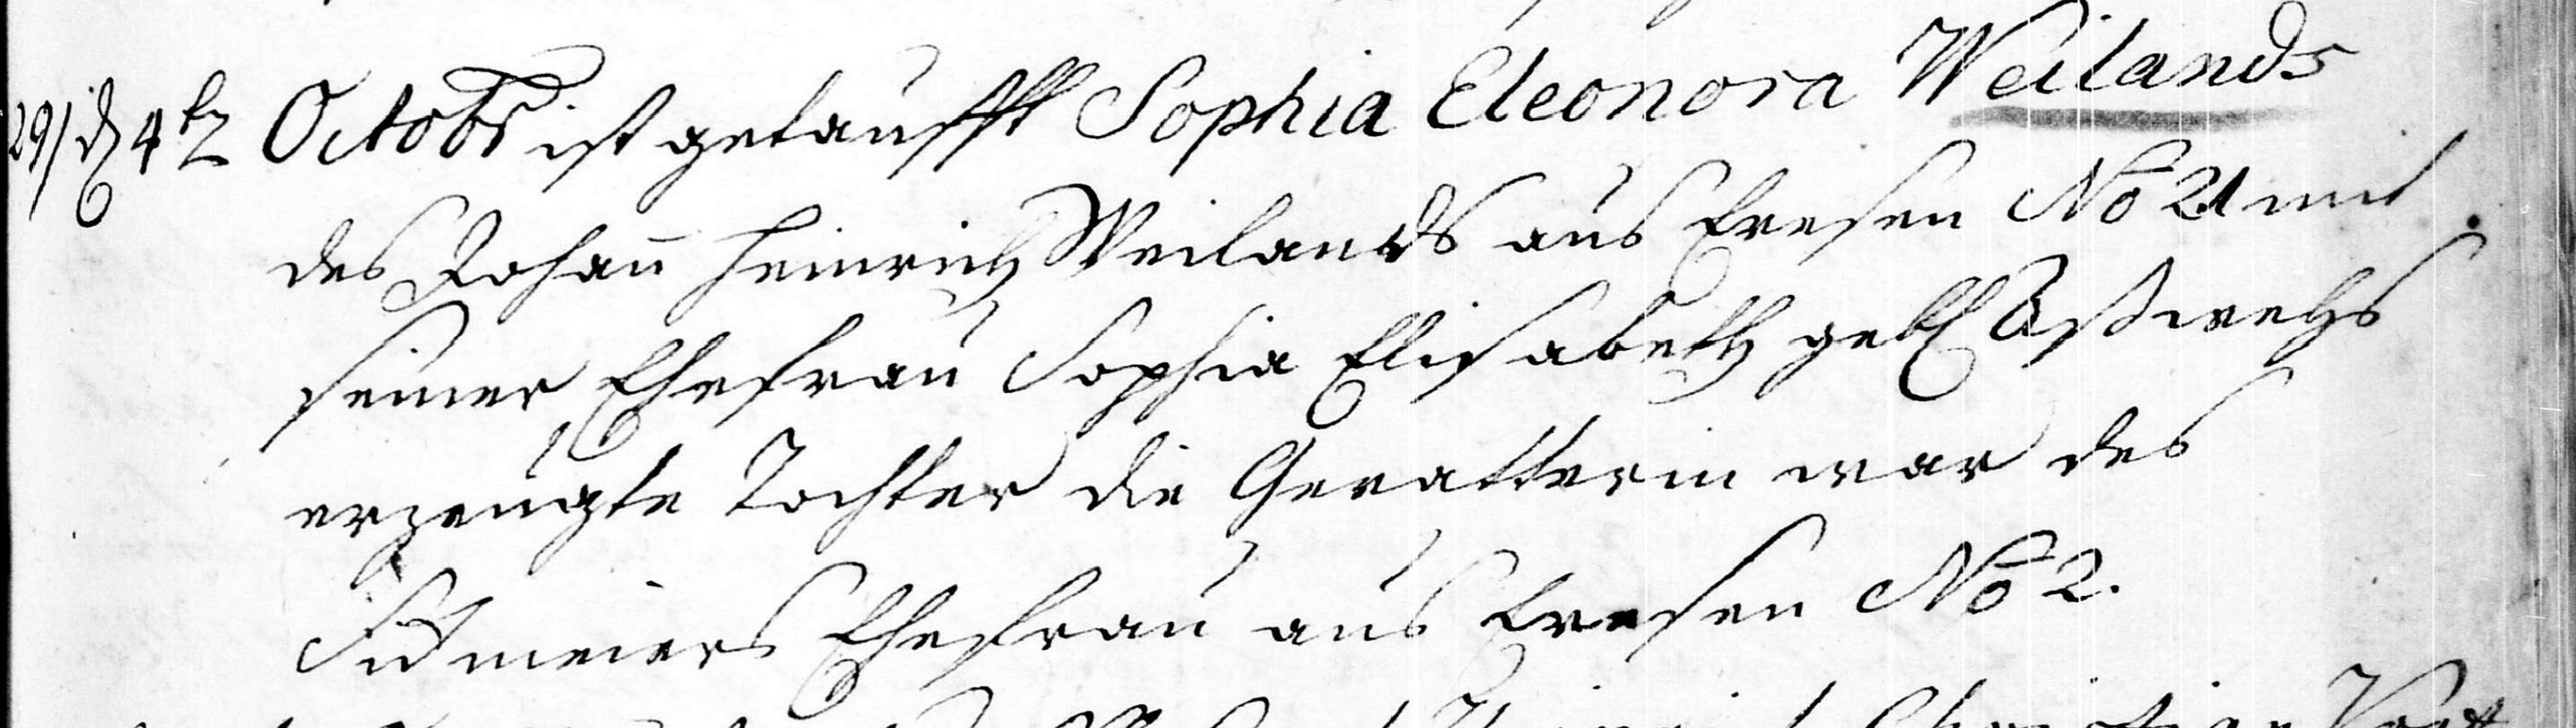 29/ d 4t Octobr ist getaufft Sophia Eleonora Weilands
des Johan Heinrich Weilands aus Eresen No 21 mit
seiner Ehefrau Sophia Elisabeth geb
erzeugte Tochter die Gevatterin war des
Ehefrau aus Eresen No 2.